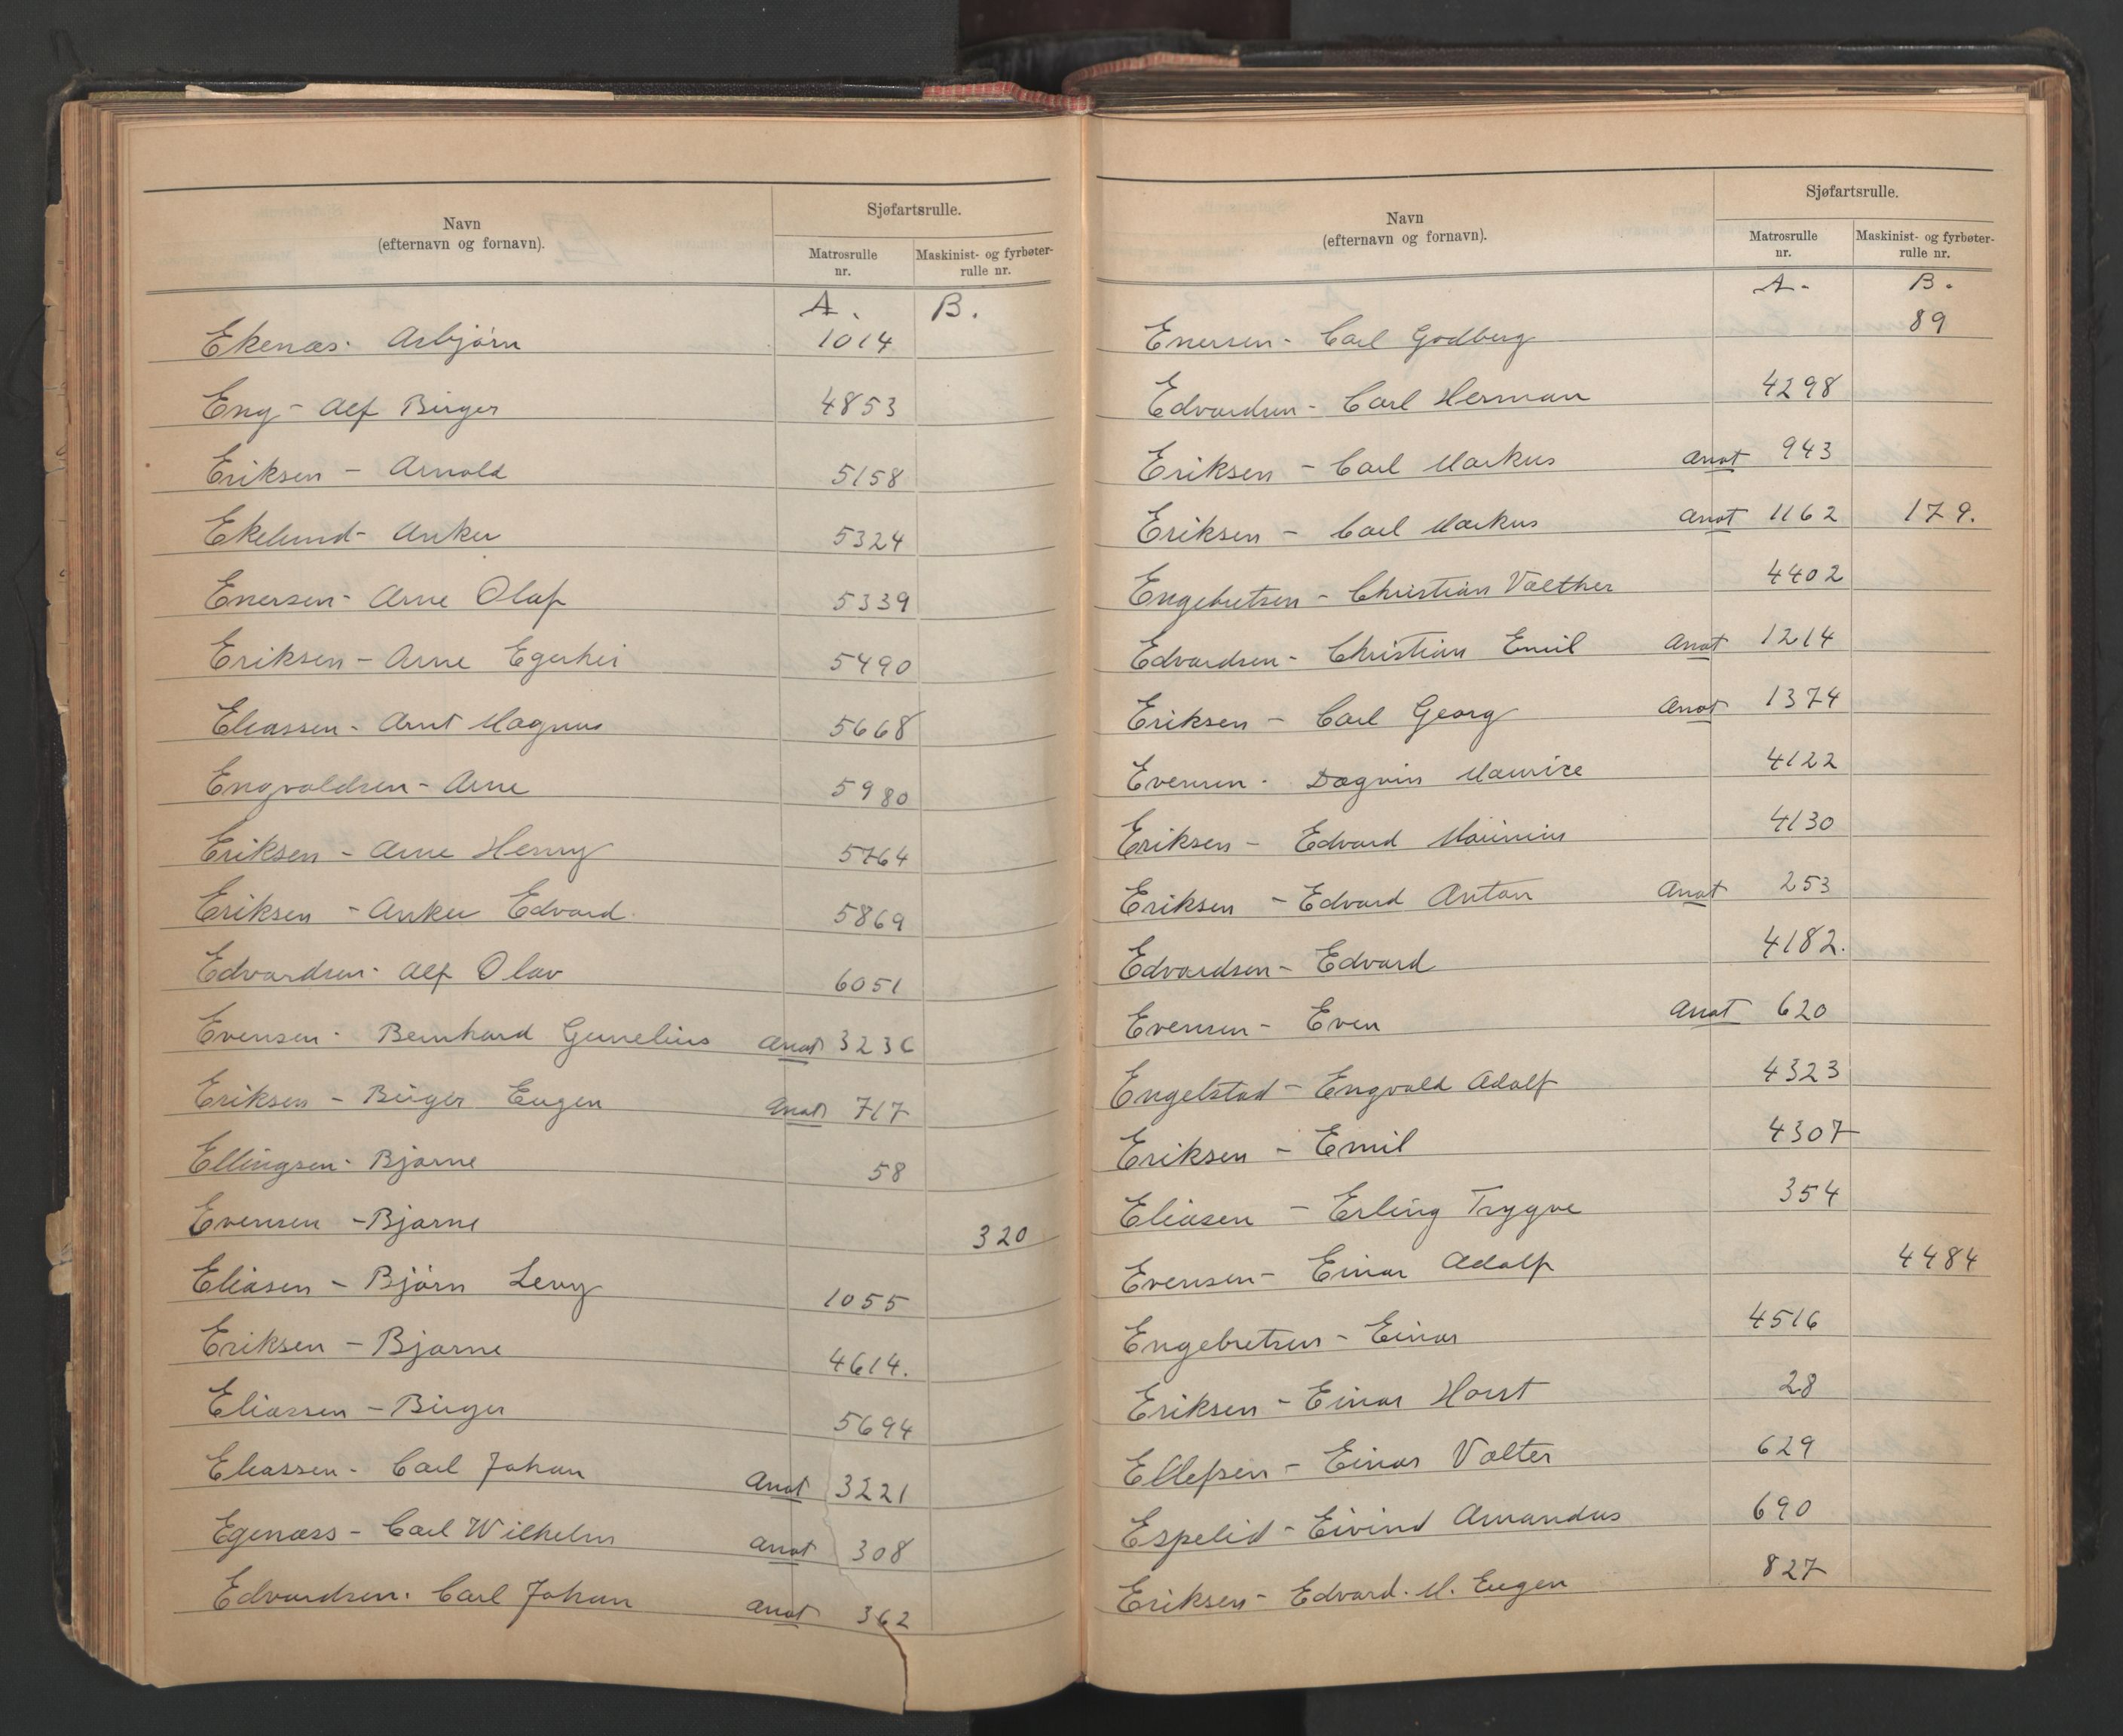 Navn
(efternavn og fornavn).
Sjøfartsrulle.
Matrosrulle nr.
Maskinist- og fyrbøter- rulle nr.
A. B.
Ekenæs. Asbjørn 1014
Eng - Alf Birger 4853
Eriksen - Arnold 5158
Ekelund - Anker 5324
Enersen - Arne Olaf 5339
Eriksen - Arne 5490
Eleassen - Arnt Magnus 5668
Engvaldsen - Arne 5980
Eriksen - Arne Henry 5764
Eriksen - Anker Edvard. 5869
Edvardsen - Alf Olav 6051
Evensen - Bernhard Anot 3236
Eriksen - Birger Eugen Anot 717
Ellingsen - Bjarne 58
Evensen - Bjarne 320
Eliasen - Bjørn Levy 1055
Eriksen - Bjarne 4614.
Eliassen - Birger 5694
Eleassen - Carl Johan Anot 3221
Egenæss - Carl Wilhelm Anot 308
Edvardsen. Carl Johan Anot 362
Navn
(efternavn og fornavn).
Sjøfartsrulle.
Matrosrulle nr.
Maskinist- og fyrbøter- rulle nr.
A. B.
Enersen - Carl Godberg 89
Edvardsen - Carl Herman 4298
Eriksen - Carl Markus Anot 943
Eriksen - Carl Markus Anot 1162 179.
Engebretsen - Christian Valther 4402
Edvardsen - Christian Emil Anot 1214
Eriksen - Carl Georg Anot 1374
Evensen - Dagvin Maurice 4122
Eriksen - Edvard 4130
Eriksen - Edvard Anton Anot 253
Edvardsen - Edvard 4182.
Evensen - Even Anot 620
Engelstad - Engvald Adolf 4323
Eriksen - Emil 4307
Eliasen - Erling Trygve 354
Evensen - Einar Adolf 4484
Engebretsen - Einar 4516
Eriksen - Einar Horst 28
Ellefsen - Einar Valter 629
Espelid - Eivind Amandus 690
Eriksen - Edvard. M. Eugen 827